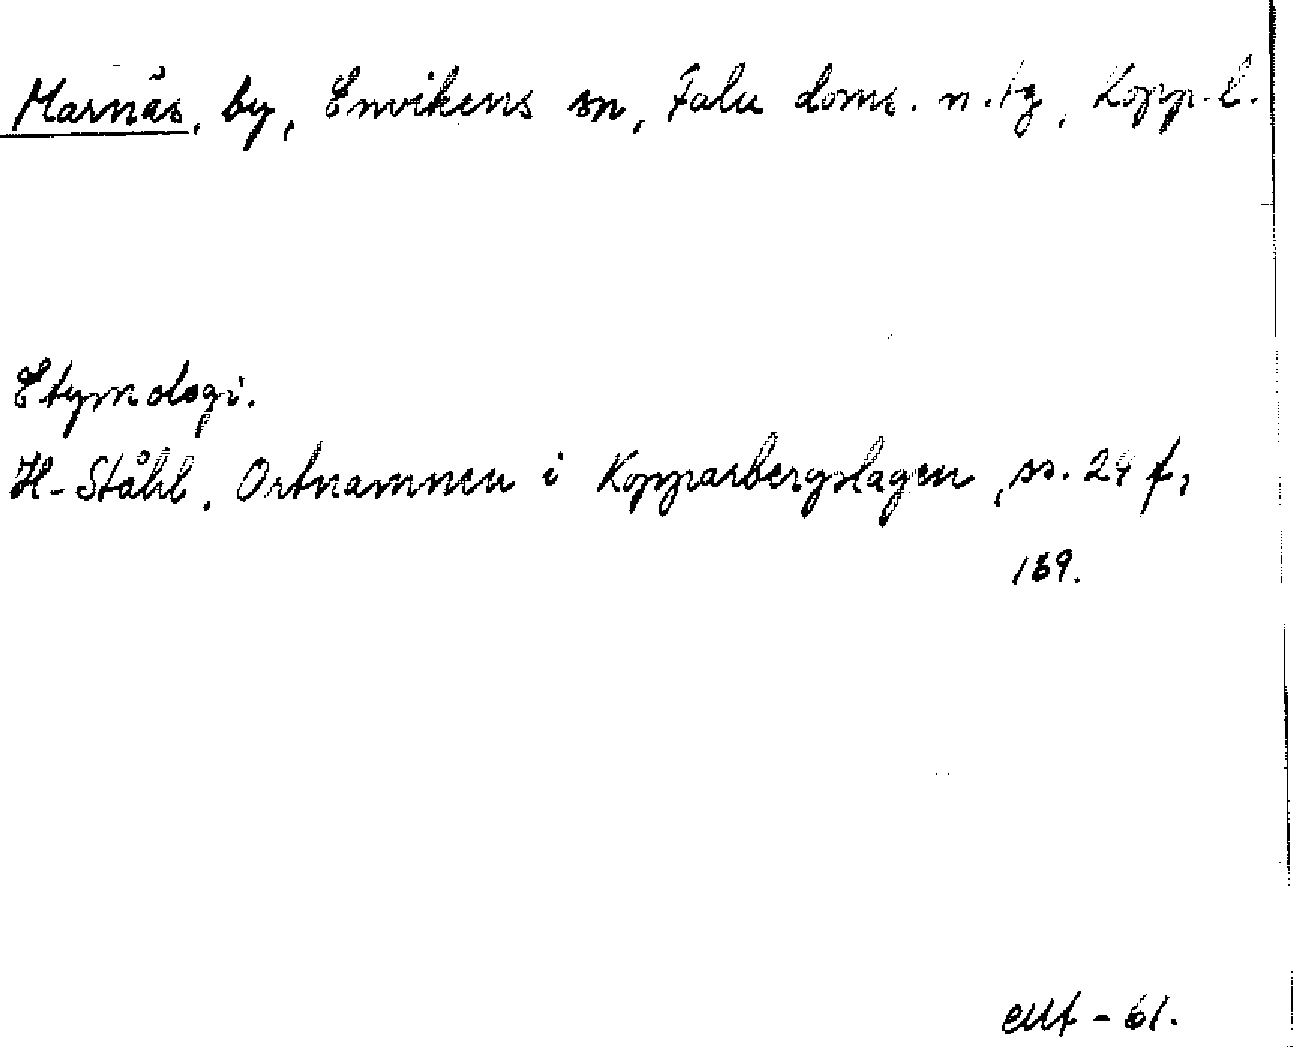 Marnäs, by, Envikens sn, Falu doms. n. tg, Kopp. l.
Etymologi.
H. Ståhl, Ortnamnen i Kopparbergslagen, ss. 24 f,
169.
- 61.